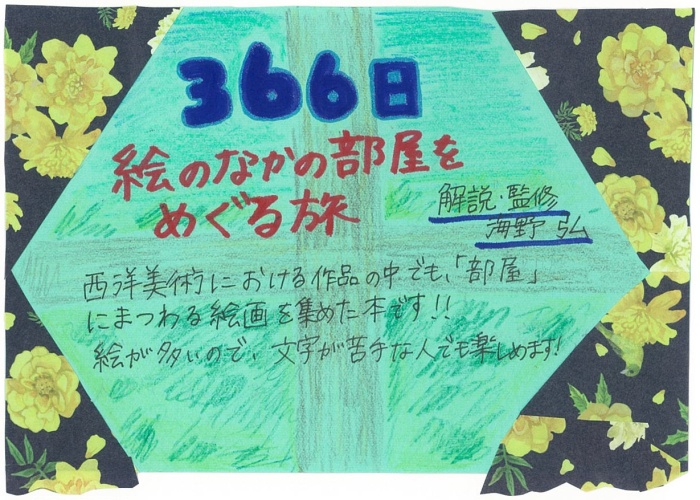 366日
絵のなかの部屋を
めぐる旅
解説・監修
海野 弘
西洋美術における作品の中でも、「部屋」
にまつわる絵画を集めた本です!!
絵が多いので、文字が苦手な人でも楽しめます!